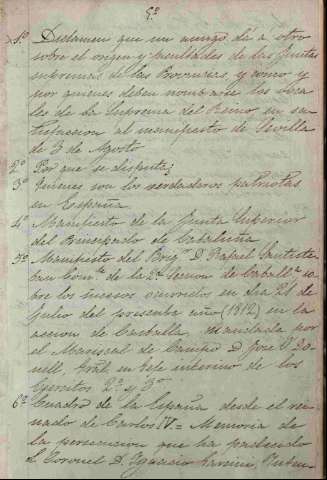 5º
1º Dictamen que un amigo dá a otro
sobre el origen y facultades de las Juntas
supremas de las Provincias y como y
por quienes deben nombrarse los voca-
les de la Suprema del Reino en con-
testacion al manifiesto de Sevilla
de 3 de Agosto
2º Por que se disputa;
3º Quienes son los verdaderos patriotas
en España
4º Manifiesto de la Junta Superior
del Principado de Cataluña
5º Manifiesto del Brigr D. Rafael Santiste-
ban Comte de la 2ª Secion de Caballª so-
bre los sucesos ocurridos en dia 21 de
Julio del presente año (1812) en la
accion de Castalla, mandada por
el Mariscal de Campo D. José O Do-
nell, Gral en Jefe interino de los
Egercitos 2º y 3º
6º Cuadro de la España desde el rei-
nado de Carlos IV = Memoria de
la persecucion que ha padecido
el Coronel D. Ignacio Garcini, Inten-